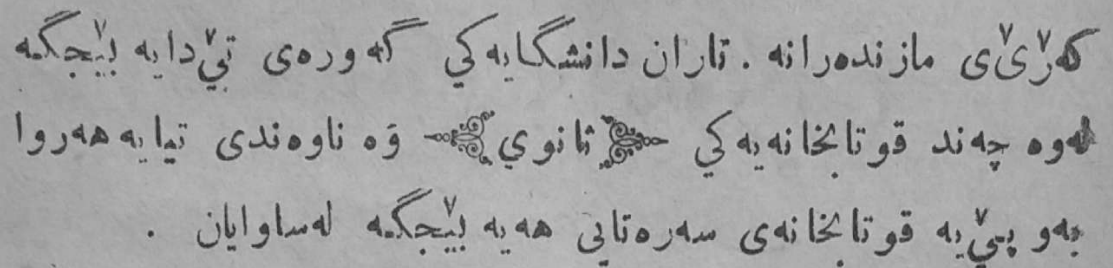 كەڕێی مازندەرانە . تاران دانشگایەكي گەورەی تێدایە بێجگە
لەوە چەند قوتابخانەیەكي ﴿ثانوي﴾ وە ناوەندی تیایە هەروا
بەو پێیە قوتابخانەی سەرەتایی هەیە بێجگە لەساوایان .